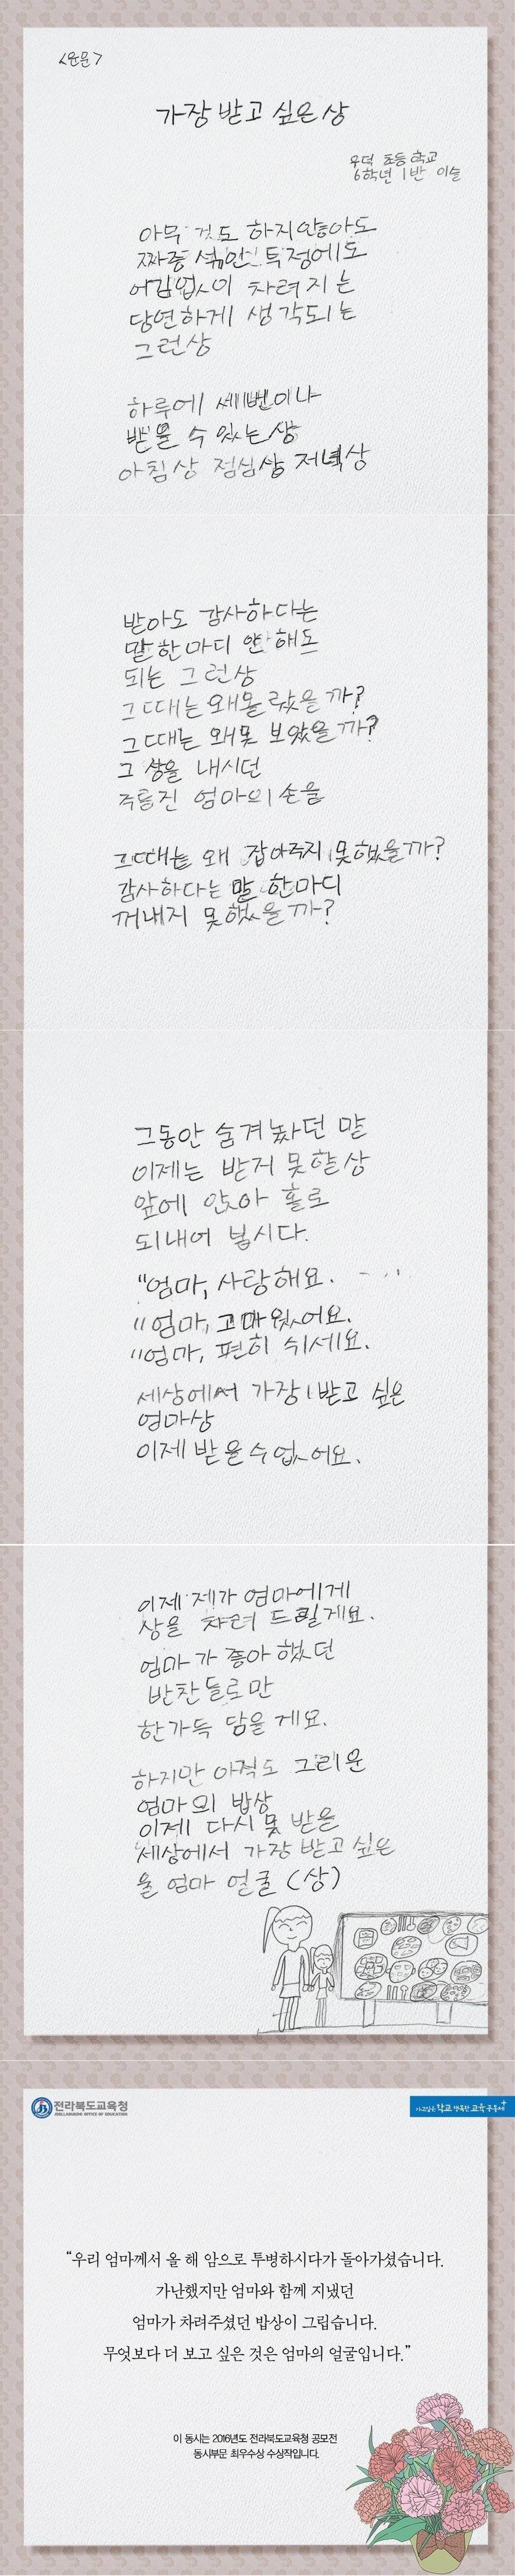 <운문>
가장 받고 싶은 상
우덕 초등학교
6학년 1반 이슬
아무 것도 하지않아도
짜증 섞인 투정에도
어김없이 차려지는
당연하게 생각되는
그런상
하루에 세번이나
받을 수 있는상
아침상 점심상 저녁상
받아도 감사하다는
말 한마디 안해도
되는 그런상
그때는 왜몰랐을까?
그때는 왜못 보았을까?
그 상을 내시던
주름진 엄마의 손을
그때는 왜 잡아주지 못했을까?
감사하다는 말 한마디
꺼내지 못했을까?
그동안 숨겨놨던 말
이제는 받지 못할상
앞에 앉아 홀로
되내어 봅시다.
"엄마, 사랑해요.
"엄마, 고마웠어요.
"엄마, 편히 쉬세요.
세상에서 가장 받고 싶은
엄마상
이제 받을수없어요.
이제 제가 엄마에게
상을 차려 드릴게요.
엄마가 좋아했던
반찬들로만
한가득 담을게요.
하지만 아직도 그리운
엄마의 밥상
이제 다시 못 받을
세상에서 가장 받고 싶은
울 엄마 얼굴 (상)
전라북도교육청
JEOLLABUKDO OFFICE OF EDUCATION
가고싶은 학교 행복한 교육공동체
“우리 엄마께서 올 해 암으로 투병하시다가 돌아가셨습니다.
가난했지만 엄마와 함께 지냈던
엄마가 차려주셨던 밥상이 그립습니다.
무엇보다 더 보고 싶은 것은 엄마의 얼굴입니다.”
이 동시는 2016년도 전라북도교육청 공모전
동시부문 최우수상 수상작입니다.